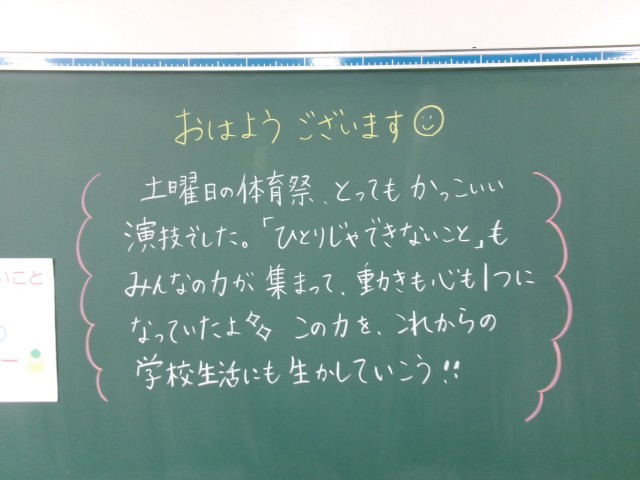 おはようございます☺
土曜日の体育祭、とってもかっこいい
演技でした。「ひとりじゃできないこと」も
みんなの力が集まって、動きも心も1つに
なっていたよ✨ この力を、これからの
学校生活にも生かしていこう!!
いこと